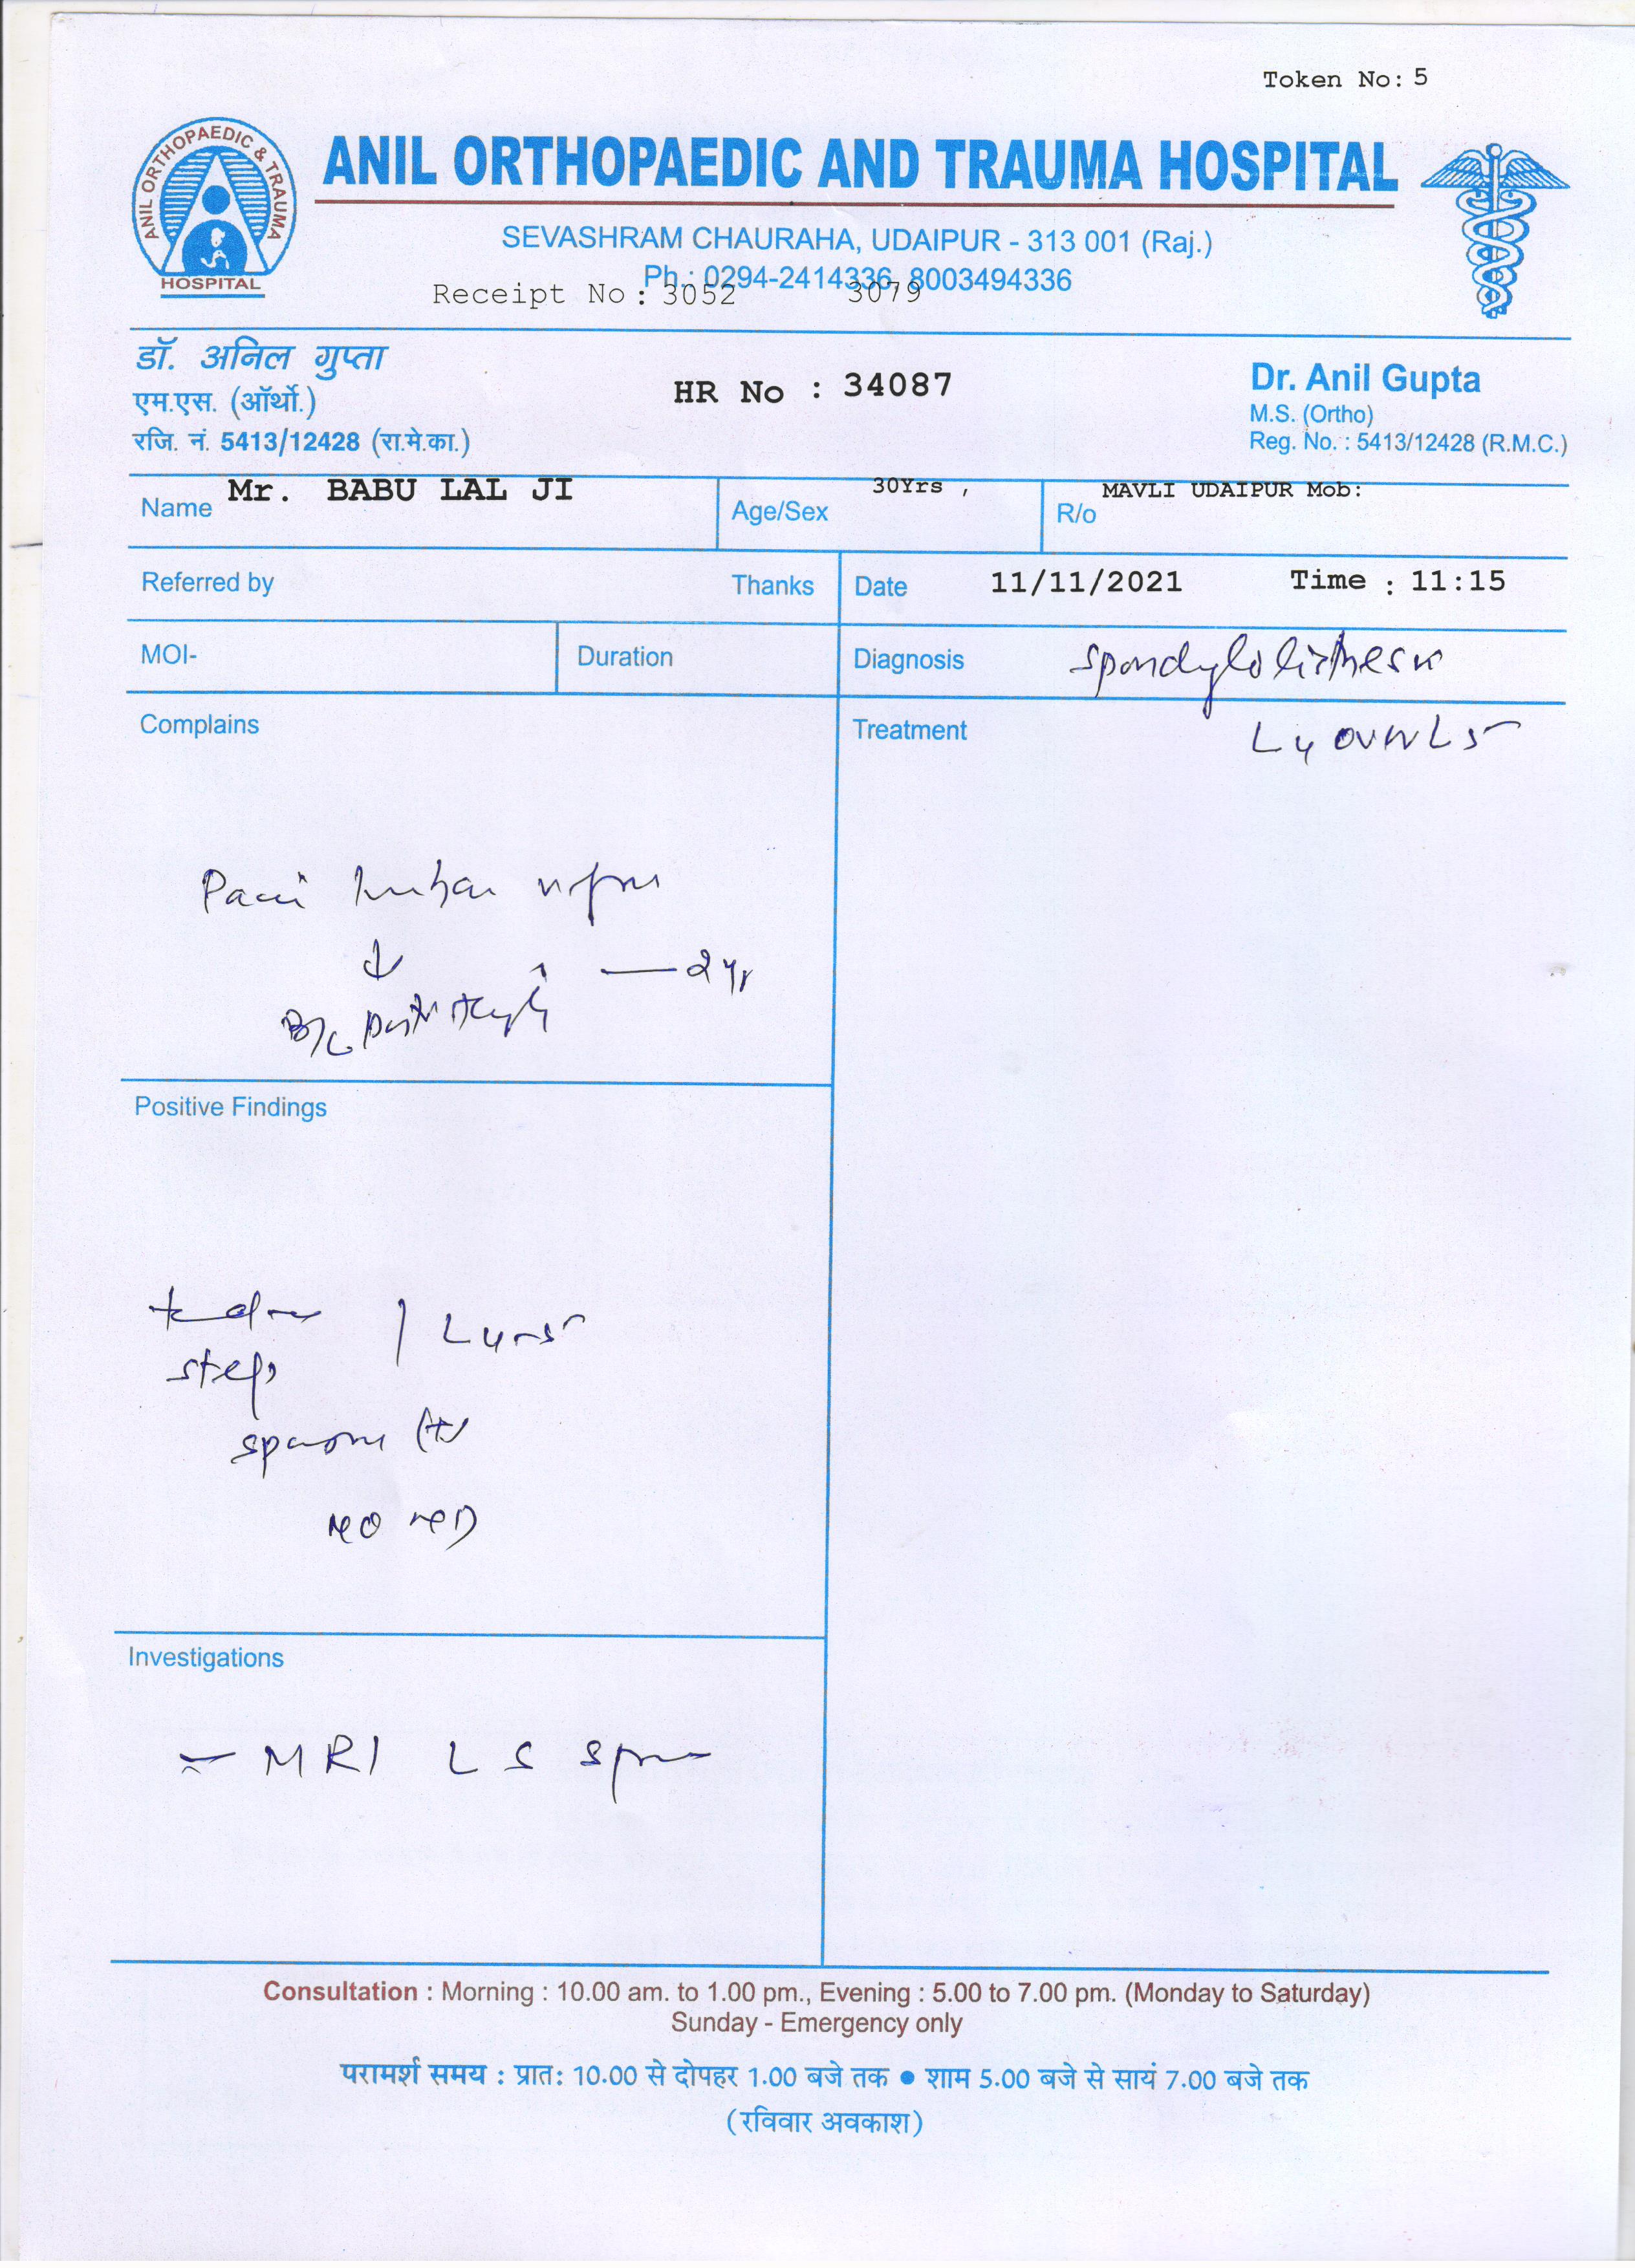 Token No: 5
ANIL ORTHOPAEDIC & TRAUMA
HOSPITAL
ANIL ORTHOPAEDIC AND TRAUMA HOSPITAL
SEVASHRAM CHAURAHA, UDAIPUR - 313 001 (Raj.)
Ph.: 0294-2414336, 8003494336
Receipt No: 3052 3079
डॉ. अनिल गुप्ता
एम.एस. (ऑर्थो.)
रजि. नं. 5413/12428 (रा.मे.का.)
HR No : 34087
Dr. Anil Gupta
M.S. (Ortho)
Reg. No. : 5413/12428 (R.M.C.)
Name Mr. BABU LAL JI
Age/Sex 30Yrs ,
R/o MAVLI UDAIPUR Mob:
Referred by Thanks
Date 11/11/2021 Time : 11:15
MOI- Duration
Diagnosis spondylolisthesis
L4 over L5
Complains
Treatment
Pain
— 2 yr
B/L post thigh
Positive Findings
L4-5
step
spasm (+)
Investigations
MRI L S spine
Consultation : Morning : 10.00 am. to 1.00 pm., Evening : 5.00 to 7.00 pm. (Monday to Saturday)
Sunday - Emergency only
परामर्श समय : प्रात: 10.00 से दोपहर 1.00 बजे तक ● शाम 5.00 बजे से सायं 7.00 बजे तक
(रविवार अवकाश)